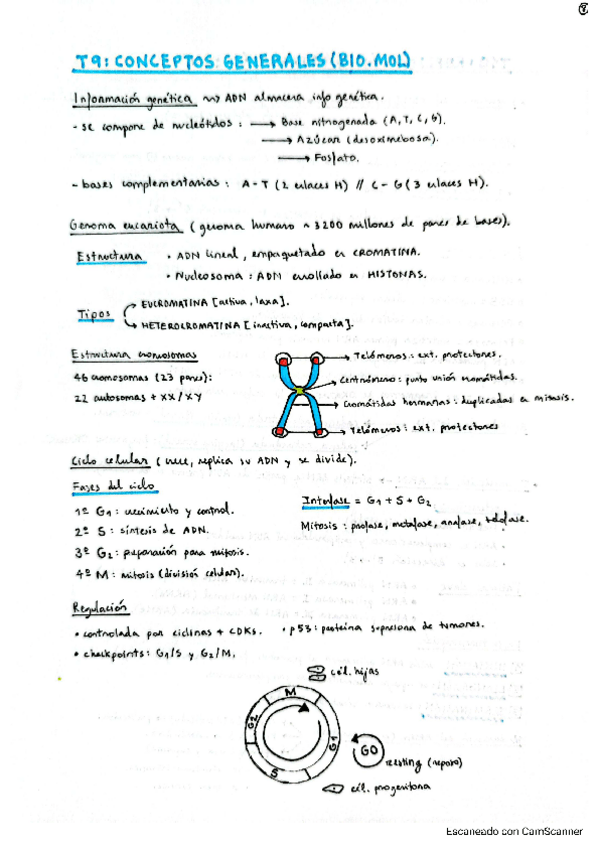 9
T9: CONCEPTOS GENERALES (BIO.MOL)
Información genética ~> ADN almacena info genética.
- se compone de nucleótidos: → Base nitrogenada (A, T, C, G).
→ Azúcar (desoxirribosa).
→ Fosfato.
- bases complementarias: A-T (2 enlaces H) // C-G (3 enlaces H).
Genoma eucariota (genoma humano ~ 3200 millones de pares de bases).
Estructura • ADN lineal, empaquetado en CROMATINA.
• Nucleosoma: ADN enrollado en HISTONAS.
Tipos
EUCROMATINA [activa, laxa].
HETEROCROMATINA [inactiva, compacta].
Estructura cromosomas
46 cromosomas (23 pares):
22 autosomas + XX/XY
→ Telómeros: ext. protectores.
→ Centrómero: punto unión cromátidas.
→ Cromátidas hermanas: duplicadas en mitosis.
→ Telómeros: ext. protectores
Ciclo celular (crece, replica su ADN y se divide).
Fases del ciclo
1º G1: crecimiento y control.
2º S: síntesis de ADN.
3º G2: preparación para mitosis.
4º M: mitosis (división celular).
Interfase = G1 + S + G2
Mitosis: profase, metafase, anafase, telofase.
Regulación
• controlada por ciclinas + CDKs. • p53: proteína supresora de tumores.
• checkpoints: G1/S y G2/M.
cél. hijas
M
G2
G1
S
G0
resting (reposo)
cél. progenitora
Escaneado con CamScanner